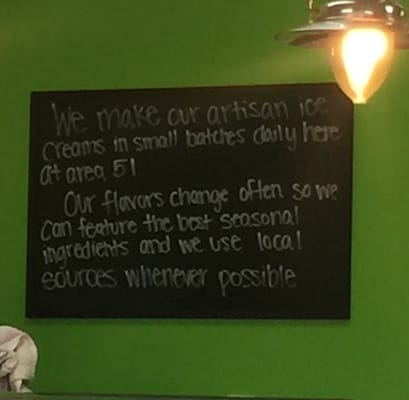 We make our artisan ice
creams in small batches daily here
at area 51
Our flavors change often so we
can feature the best seasonal
ingredients and we use local
sources whenever possible